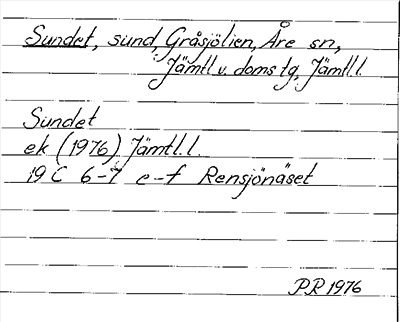 Sundet, sund, Gråsjölien, Åre sn,
Jämtl. v. doms tg, Jämtl. l.
Sundet
ek (1976) Jämtl. l.
19 C 6-7 e-f Rensjönäset
PR 1976